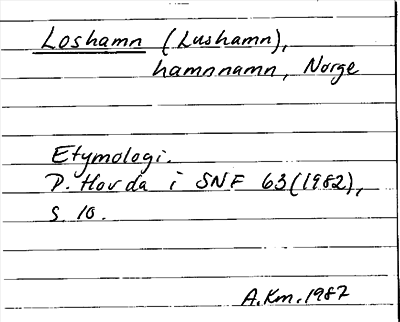 Loshamn (Lushamn),
hamnnamn, Norge
Etymologi.
P. Hovda i SNF 63(1982),
s. 10.
A.Km.1987